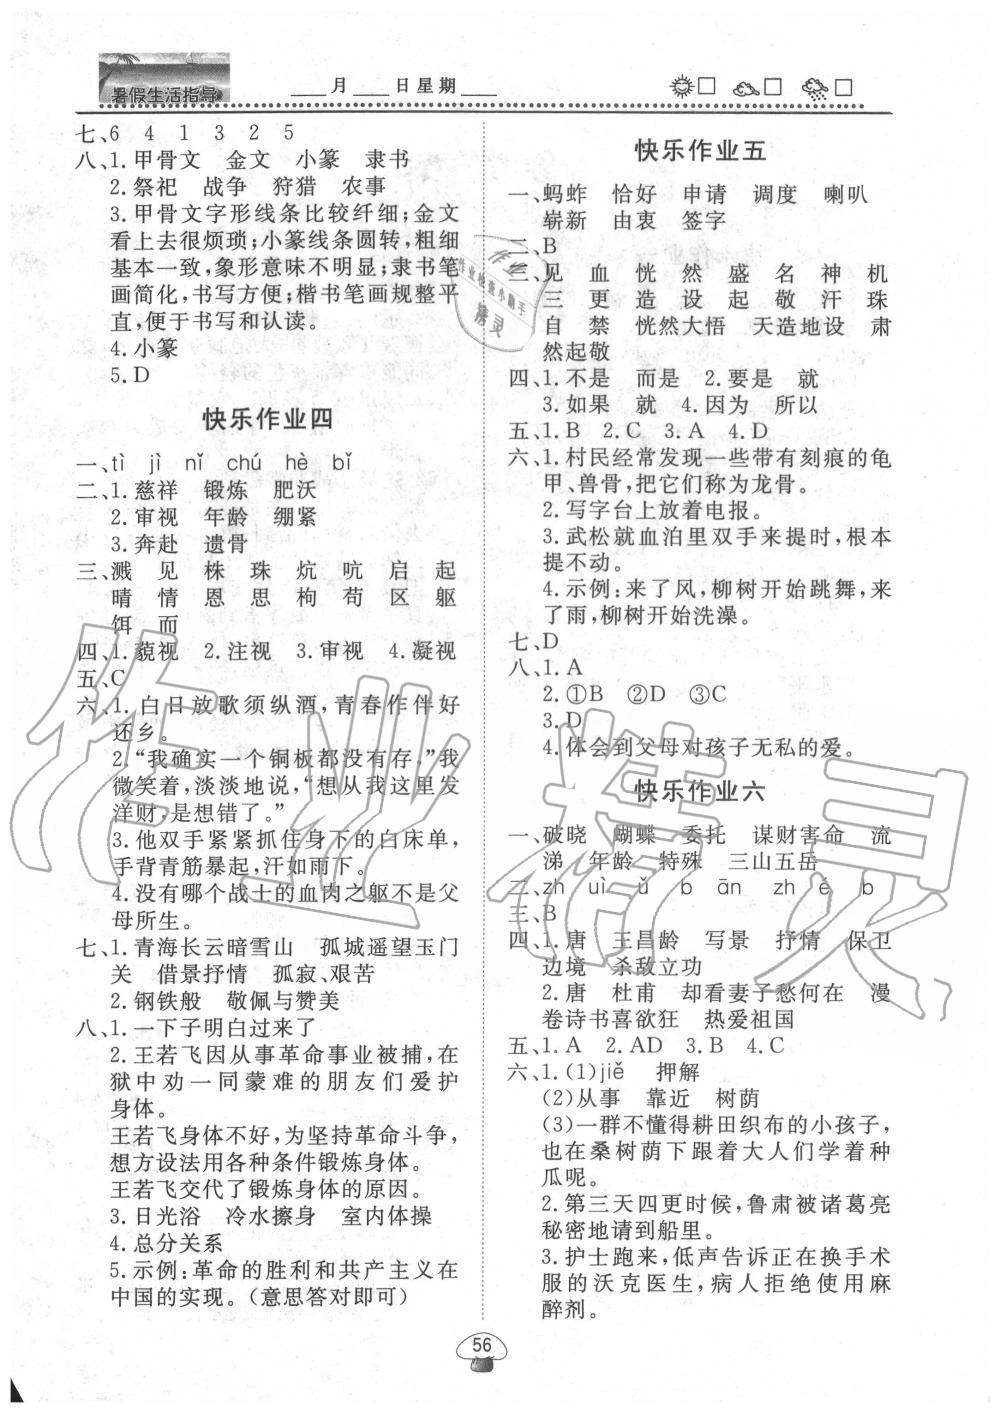 暑假生活指导
____月____日星期____
七、6 4 1 3 2 5
八、1.甲骨文 金文 小篆 隶书
2.祭祀 战争 狩猎 农事
3.甲骨文字形线条比较纤细；金文
看上去很烦琐；小篆线条圆转，粗细
基本一致，象形意味不明显；隶书笔
画简化，书写方便；楷书笔画规整平
直，便于书写和认读。
4.小篆
5.D
快乐作业四
一、tì jì nǐ chú hè bǐ
二、1.慈祥 锻炼 肥沃
2.审视 年龄 绷紧
3.奔赴 遗骨
三、溅 见 株 珠 炕 吭 启 起
晴 情 恩 思 枸 苟 区 躯
饵 而
四、1.藐视 2.注视 3.审视 4.凝视
五、C
六、1.白日放歌须纵酒，青春作伴好
还乡。
2.“我确实一个铜板都没有存，”我
微笑着，淡淡地说，“想从我这里发
洋财，是想错了。”
3.他双手紧紧抓住身下的白床单，
手背青筋暴起，汗如雨下。
4.没有哪个战士的血肉之躯不是父
母所生。
七、1.青海长云暗雪山 孤城遥望玉门
关 借景抒情 孤寂、艰苦
2.钢铁般 敬佩与赞美
八、1.一下子明白过来了
2.王若飞因从事革命事业被捕，在
狱中劝一同蒙难的朋友们爱护
身体。
王若飞身体不好，为坚持革命斗争，
想方设法用各种条件锻炼身体。
王若飞交代了锻炼身体的原因。
3.日光浴 冷水擦身 室内体操
4.总分关系
5.示例：革命的胜利和共产主义在
中国的实现。（意思答对即可）
快乐作业五
一、蚂蚱 恰好 申请 调度 喇叭
崭新 由衷 签字
二、B
三、见 血 恍 然 盛 名 神 机
三 更 造 设 起 敬 汗 珠
自 禁 恍然大悟 天造地设 肃
然起敬
四、1.不是 而是 2.要是 就
3.如果 就 4.因为 所以
五、1.B 2.C 3.A 4.D
六、1.村民经常发现一些带有刻痕的龟
甲、兽骨，把它们称为龙骨。
2.写字台上放着电报。
3.武松就血泊里双手来提时，根本
提不动。
4.示例：来了风，柳树开始跳舞，来
了雨，柳树开始洗澡。
七、D
八、1.A
2.①B ②D ③C
3.D
4.体会到父母对孩子无私的爱。
快乐作业六
一、破晓 蝴蝶 委托 谋财害命 流
涕 年龄 特殊 三山五岳
二、zh uì ǔ b ān zh é b
三、B
四、1.唐 王昌龄 写景 抒情 保卫
边境 杀敌立功
2.唐 杜甫 却看妻子愁何在 漫
卷诗书喜欲狂 热爱祖国
五、1.A 2.AD 3.B 4.C
六、1.(1)jiě 押解
(2)从事 靠近 树荫
(3)一群不懂得耕田织布的小孩子，
也在桑树荫下跟着大人们学着种
瓜呢。
2.第三天四更时候，鲁肃被诸葛亮
秘密地请到船里。
3.护士跑来，低声告诉正在换手术
服的沃克医生，病人拒绝使用麻
醉剂。
56
作业精灵
作业
作业检查小助手
精灵